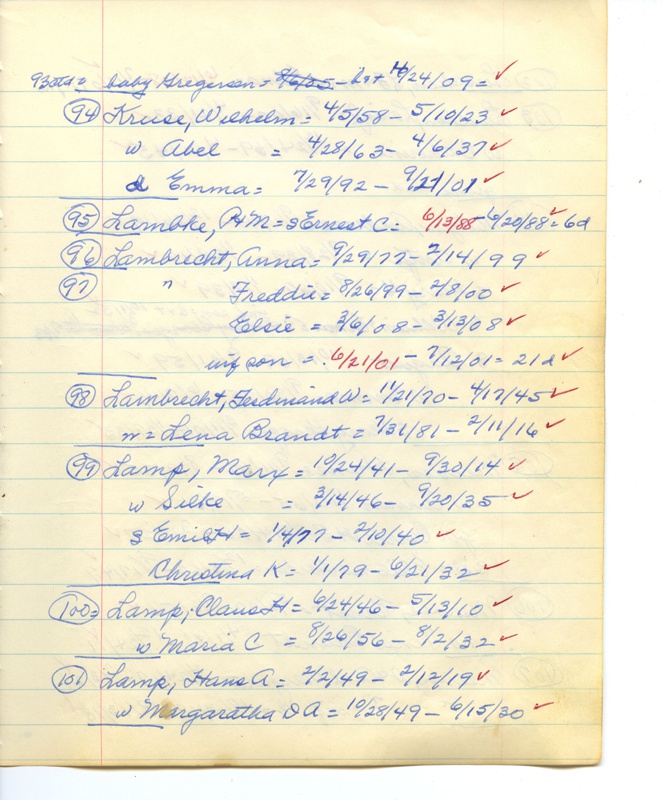 baby Gregersen = 8/6/05 - 10/24/09 = ✓
94 Kruse, Wilhelm = 4/5/58 - 5/10/23 ✓
w Abel = 4/28/63 - 4/6/37 ✓
d Emma = 7/29/92 - 9/21/01 ✓
95 Lambke, PHM = s Ernest C = 6/13/88 - 6/20/88 = 6d ✓
96 Lambrecht, Anna = 9/29/77 - 2/14/99 ✓
97 " Freddie = 8/26/99 - 2/8/00 ✓
Elsie = 3/6/08 - 3/13/08 ✓
inf son = 6/21/01 - 7/12/01 = 21d ✓
98 Lambrecht, Ferdinand W = 11/21/70 - 4/17/45 ✓
w = Lena Brandt = 7/31/81 - 2/11/16 ✓
99 Lamp, Marx = 10/24/41 - 9/30/14 ✓
w Silke = 3/14/46 - 9/20/35 ✓
s Emil H = 1/4/77 - 2/10/40 ✓
Christina K = 1/1/79 - 6/21/32 ✓
100 = Lamp, Claus H = 6/24/46 - 5/13/10 ✓
w Maria C = 8/26/56 - 8/2/32 ✓
101 Lamp, Hans A = 2/2/49 - 2/12/19 ✓
w Margaratha D A = 10/28/49 - 6/15/30 ✓